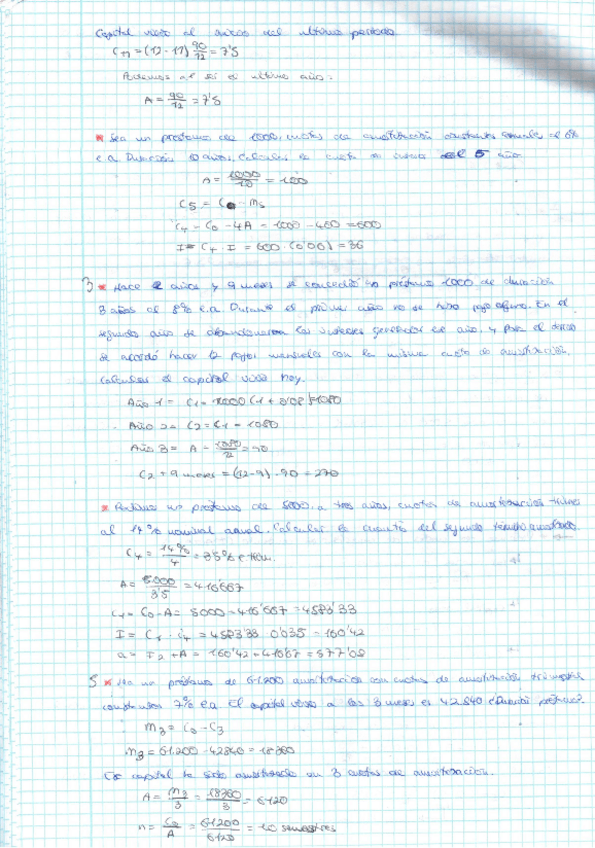 Capital vivo al inicio del último periodo
C₁₁ = (12 - 11) 90/12 = 7'5
al ser el último año.
A = 90/12 = 7'5
* Sea un préstamo de 1000, cuotas de amortización constantes anuales al 6%
e.a. Duración 10 años. Calcular la cuota de año
A = 1000/10 = 100
C5 = C0 - M5
C4 = C0 - 4A = 1000 - 400 = 600
I = C4 · I = 600 · (0'06) = 36
3 * Hace 2 años y 9 meses se concedió un préstamo 1000 de duración
3 años al 8% e.a. Durante el primer año no se hizo pago alguno. En el
segundo año se abandonaron los intereses generados el año, y para el
se acordó hacer 12 pagos mensuales con la misma cuota de amortización.
Calcular el capital vivo hoy.
Año 1 = C1 = 1000 (1 + 0'08) = 1080
Año 2 = C2 = C1 = 1080
Año 3 = A = 1080/12 = 90
C2 + 9 meses = (12-9) · 90 = 270
* un préstamo de 5000, a tres años, cuotas de amortización
al 14% nominal anual. Calcular la cuantía del segundo
C4 = 14%/4 = 3'5%
A = 5000/ = 416'667
C1 = C0 - A = 5000 - 416'667 = 4583'33
I = C1 · i4 = 4583'33 · 0'035 = 160'42
a = I2 + A = 160'42 + 416'67 = 577'08
5 * Sea un préstamo de 61.200 amortización con cuotas de amortización
constantes 7% e.a. El capital vivo a los 3 meses es 42.840
M3 = C0 - C3
M3 = 61.200 - 42840 = 18360
capital ha sido amortizado en 3 cuotas de amortización.
A = M3/3 = 18360/3 = 6120
n = C0/A = 61200/6120 = 10 semestres